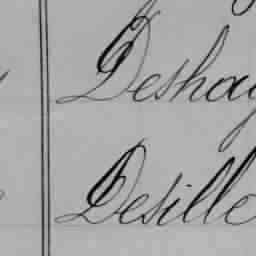 Deshay
Desille